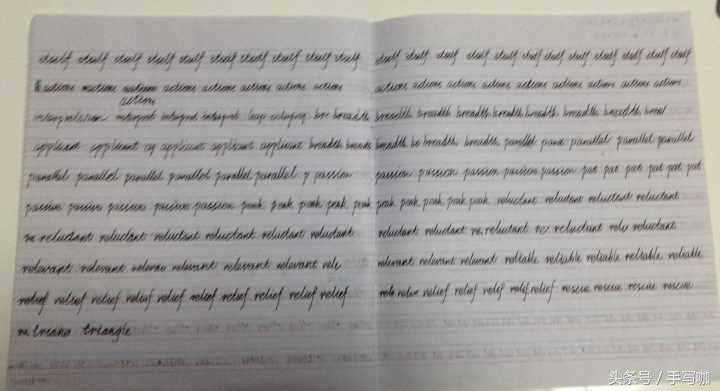 itself itself itself itself itself itself itself itself itself itself
actions actions actions actions actions actions actions actions actions
action
interpret interpret interpret breadth
applicant applicant applicant applicant applicant breadth
parallel parallel parallel parallel parallel parallel passion
passion passion passion passion passion peak peak peak peak peak
re reluctant reluctant reluctant reluctant reluctant reluctant
relevant relevant relevant relevant relevant relevant rele
relief relief relief relief relief relief relief relief relief relief
triangle
itself itself itself itself itself itself itself itself itself itself
actions actions actions actions actions actions actions actions actions
breadth breadth breadth breadth breadth breadth breadth breadth
breadth breadth breadth parallel parallel parallel parallel
passion passion passion passion passion pat pat pat pat pat pat
peak peak peak peak peak reluctant reluctant reluctant reluctant
reluctant reluctant re reluctant re reluctant relu reluctant
relevant relevant relevant reliable reliable reliable reliable reliable
relief relief relief relief relief relief rescue rescue rescue rescue
头条号 / 手写咖